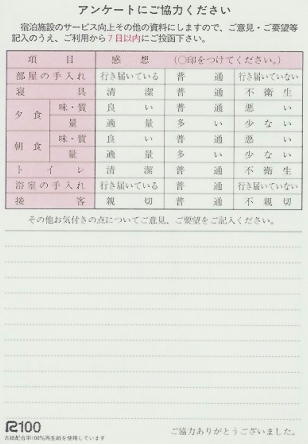 アンケートにご協力ください
宿泊施設のサービス向上その他の資料にしますので、ご意見・ご要望等
記入のうえ、ご利用から7日以内にご投函下さい。
項目 感想 (○印をつけてください。)
部屋の手入れ 行き届いている 普通 行き届いていない
寝具 清潔 普通 不衛生
夕食 味・質 良い 普通 悪い
量 適量 多い 少ない
朝食 味・質 良い 普通 悪い
量 適量 多い 少ない
トイレ 清潔 普通 不衛生
浴室の手入れ 行き届いている 普通 行き届いていない
接客 親切 普通 不親切
その他お気付きの点についてご意見、ご要望をご記入ください。
R100
古紙配合率100%再生紙を使用しています
ご協力ありがとうございました。